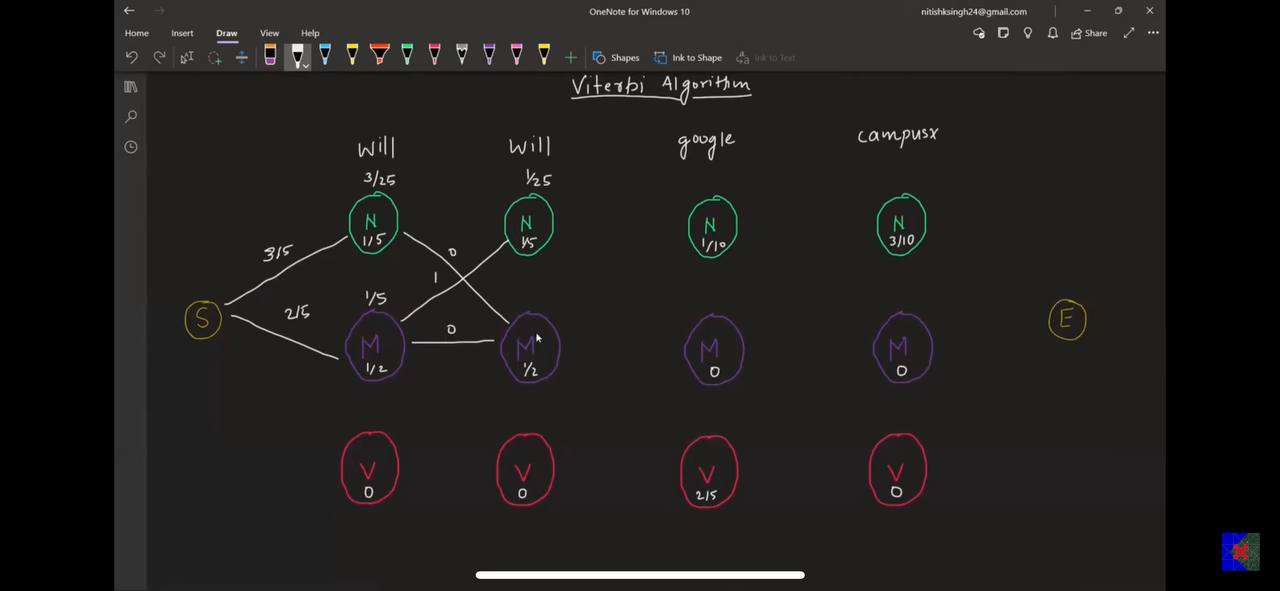 OneNote for Windows 10
nitishksingh24@gmail.com
Home Insert Draw View Help
Share
Shapes Ink to Shape Ink to Text
Viterbi Algorithm
Will Will google campusx
3/25 1/25
N N N N
1/5 1/5 1/10 3/10
3/5 0
1
S 2/5 1/5 0 E
M M M M
1/2 1/2 0 0
V V V V
0 0 2/5 0